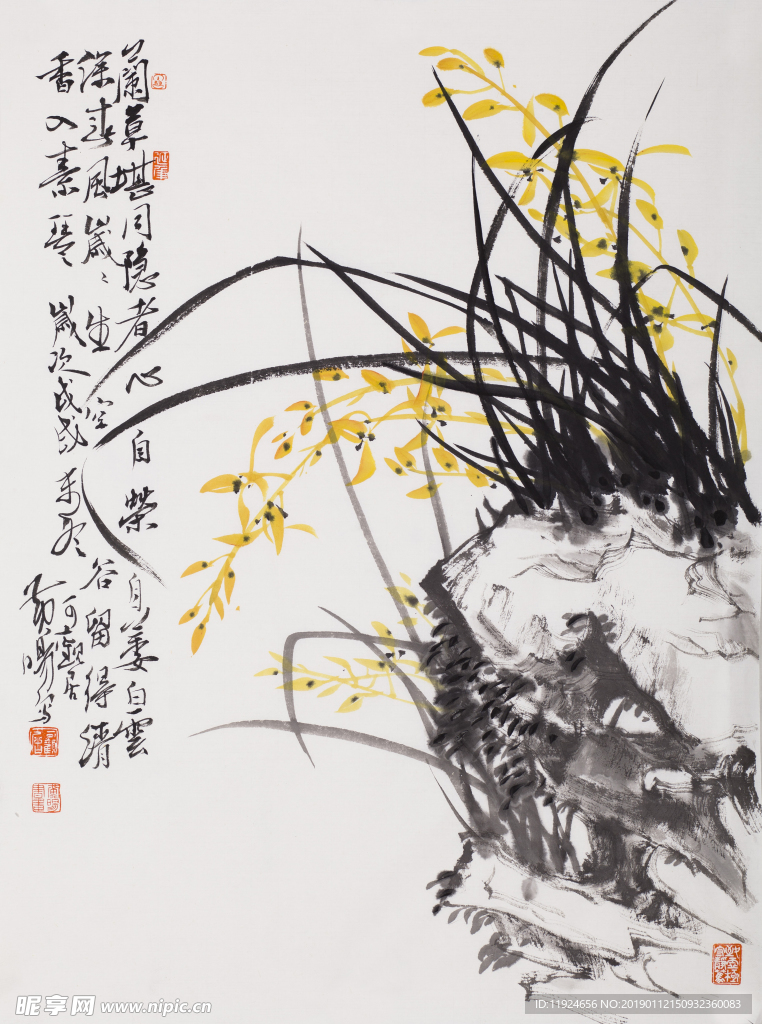 蘭草堪同隐者心自榮自萎白雲
深春風歲々生空谷留得清
香入素琴 歲次戊戌
可觀居
昵享网 www.nipic.cn
ID:11924656 NO:20190112150932360083